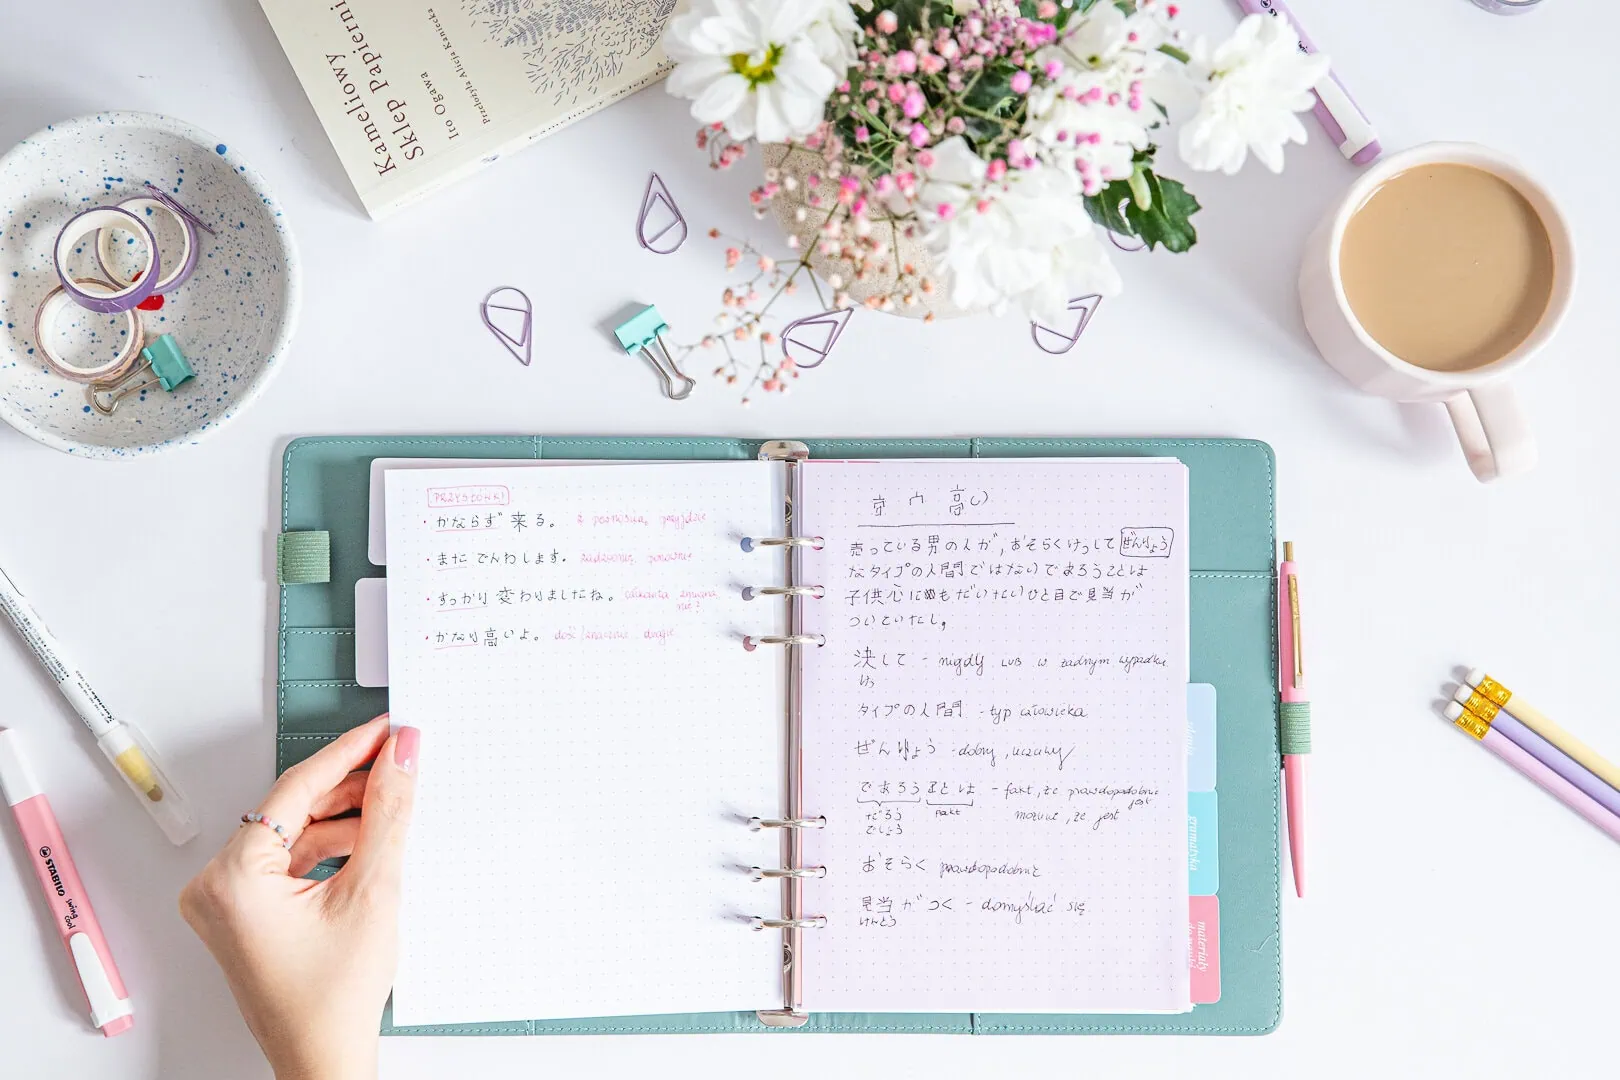 Kameliowy
Sklep Papierni
Ito Ogawa
Przełożyła Alicja Kanecka
PRZYSŁÓWKI
・かならず来る。 z pewnością przyjdzie
・またでんわします。 zadzwonię ponownie
・すっかり変わりましたね。
・かなり高いよ。 dość/znacznie drogie
高い
売っている男の人が, おそらくけっして ぜんりょう
なタイプの人間ではないであろうことは
子供心にもだいたいひと目で見当が
ついていたし。
決して - nigdy lub w żadnym wypadku
けっ
タイプの人間 - typ człowieka
ぜんりょう - dobry, uczciwy
であろうことは - fakt, że prawdopodobnie jest
だろう fakt możliwe, że jest
でしょう
おそらく prawdopodobnie
見当がつく - domyślać się
けんとう
gramatyka
materiały
STABILO
swing
cool